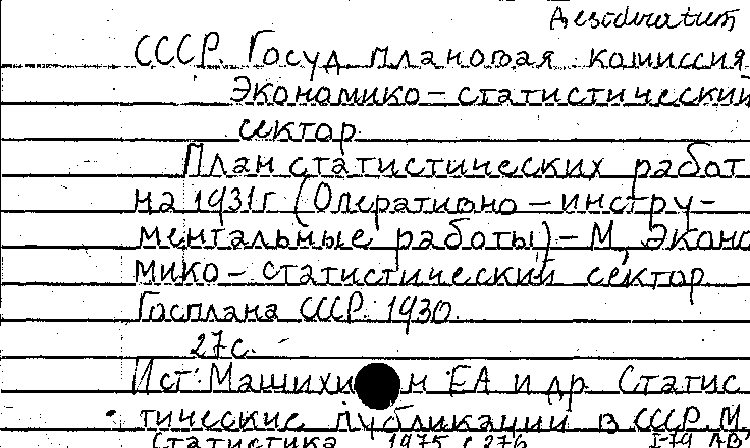 Desideratum
СССР. Госуд плановая комиссия
Экономико-статистический
сектор.
План статистических работ
на 1931г (Оперативно-инстру-
ментальные работы)-М, Эконо
мико-статистический сектор
Госплана СССР. 1930.
27с.
Ист: Машихи н ЕА и др Статис
тические публикации в СССР. М.
Статистика 1975 с 276